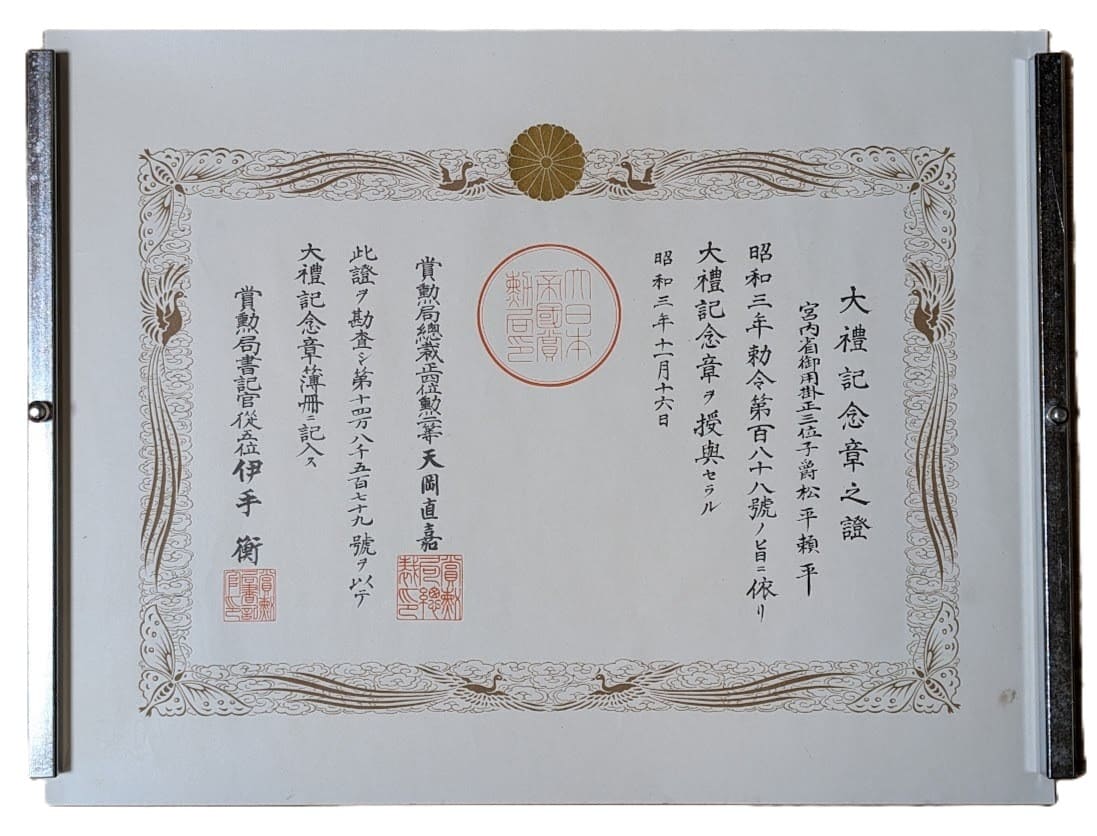 大禮記念章之證
宮内省御用掛正三位子爵松平頼平
昭和三年勅令第百八十八號ノ旨ニ依リ
大禮記念章ヲ授與セラル
昭和三年十一月十六日
大日本
帝國賞
勲局印
賞勲局總裁正四位勲二等天岡直嘉
賞勲
局總
裁印
此證ヲ勘査シ第十四万八千五百七十九號ヲ以テ
大禮記念章簿冊ニ記入ス
賞勲局書記官從五位伊手衡
賞勲
局書記
官印